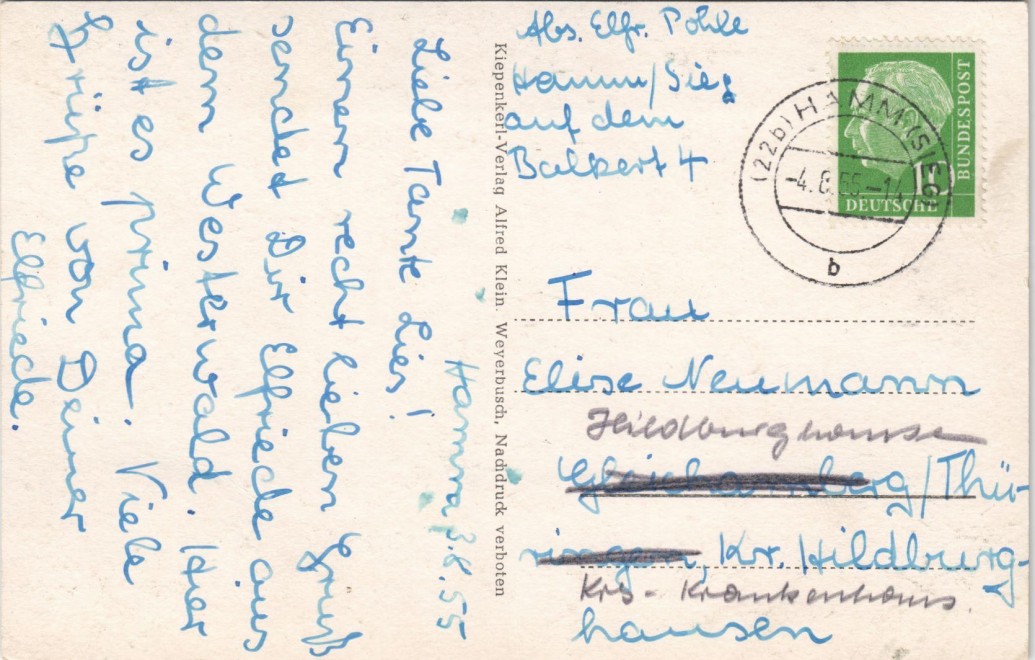 Hamm 3.8.55
Liebe Tante Lies!
Einen recht lieben Gruß
sendet Dir Elfriede aus
dem Westerwald. Hier
ist es prima. Viele
Grüße von Deiner
Elfriede.
Kiepenkerl-Verlag Alfred Klein. Weyerbusch, Nachdruck verboten
Abs. Elfr. Pohle
Hamm/Sieg
auf dem
Balkert 4
DEUTSCHE
BUNDESPOST
(22b) HAMM (SIEG)
-4.8.55-14
b
Frau
Elise Neumann
Hildburghausen
Gleichamberg/Thü-
ringen, Kr. Hildburg-
Krs-Krankenhaus.
hausen